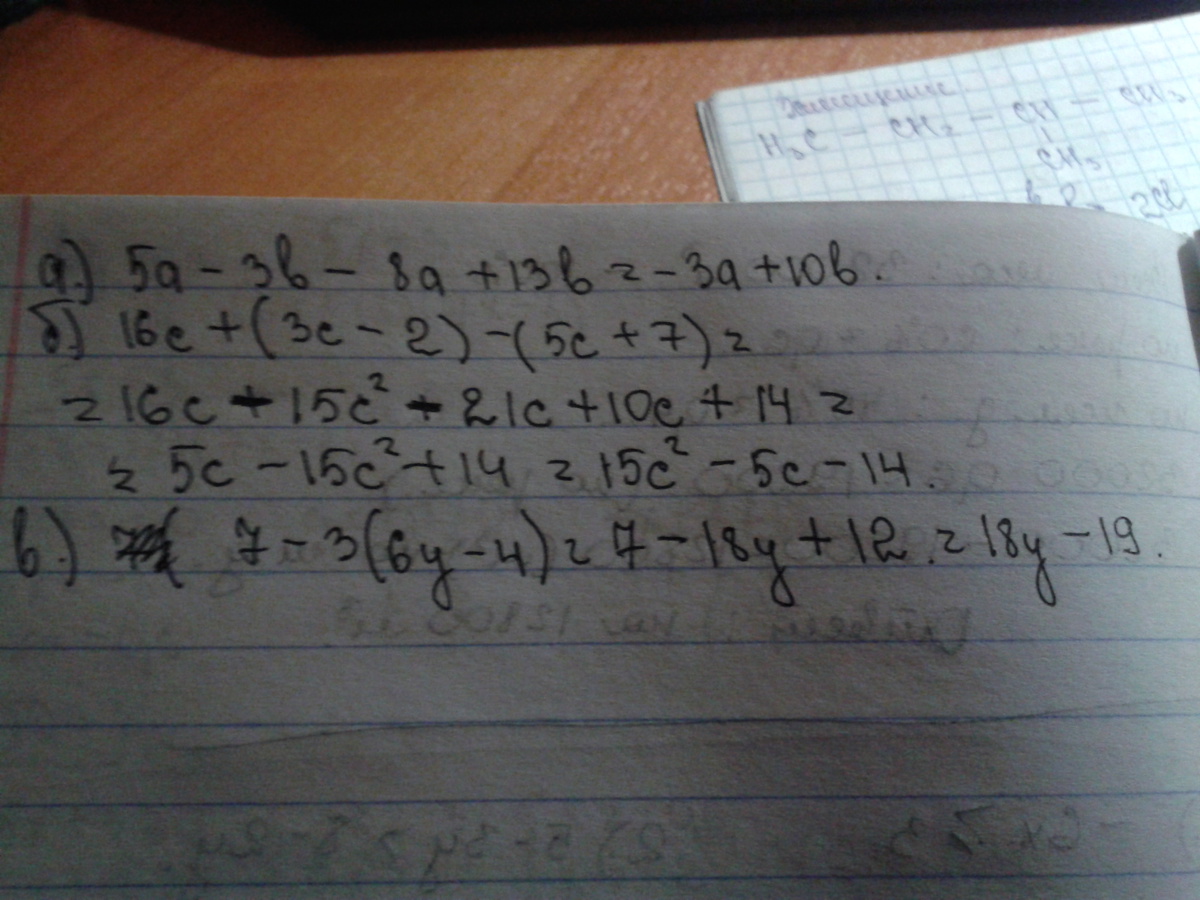 Замещение.
H₃C - CH₂ - CH - CH₃
CH₃
2Cl
а.) 5a - 3b - 8a + 13b = -3a + 10b.
б) 16c + (3c - 2) - (5c + 7) =
= 16c - 15c² - 21c + 10c + 14 =
= 5c - 15c² + 14 = 15c² - 5c - 14.
в.) 7 - 3(6y - 4) = 7 - 18y + 12. = 18y - 19.